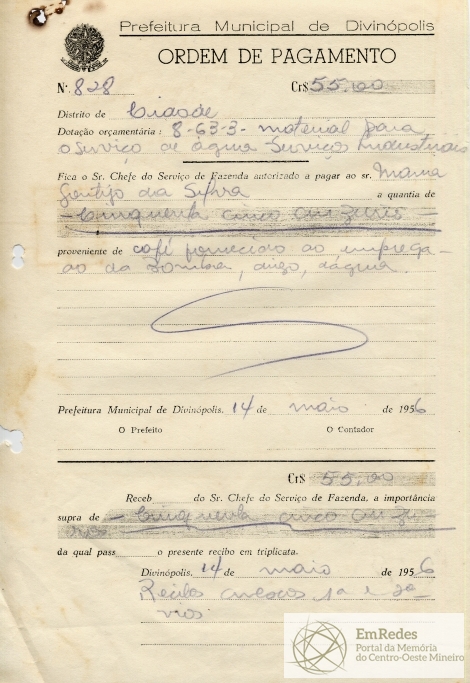 Prefeitura Municipal de Divinópolis
ORDEM DE PAGAMENTO
N.º 828 Cr$ 55,00
Distrito de Cidade
Dotação orçamentária: 8-63-3- material para
o serviço de água Serviços Industriais
Fica o Sr. Chefe do Serviço de Fazenda autorizado a pagar ao sr. Maria
Gontijo da Silva a quantia de
- Cinquenta cinco cruzeiros
proveniente de café fornecido ao emprega-
do da bomba, digo, dágua.
Prefeitura Municipal de Divinópolis, 14 de maio de 1956
O Prefeito O Contador
Cr$ 55,00
Receb do Sr. Chefe do Serviço de Fazenda, a importância
supra de - Cinquenta cinco cruzei
ros
da qual pass o presente recibo em triplicata.
Divinópolis, 14 de maio de 1956
Recibos anexos 1ª e
vias
EmRedes
Portal da Memória
do Centro-Oeste Mineiro